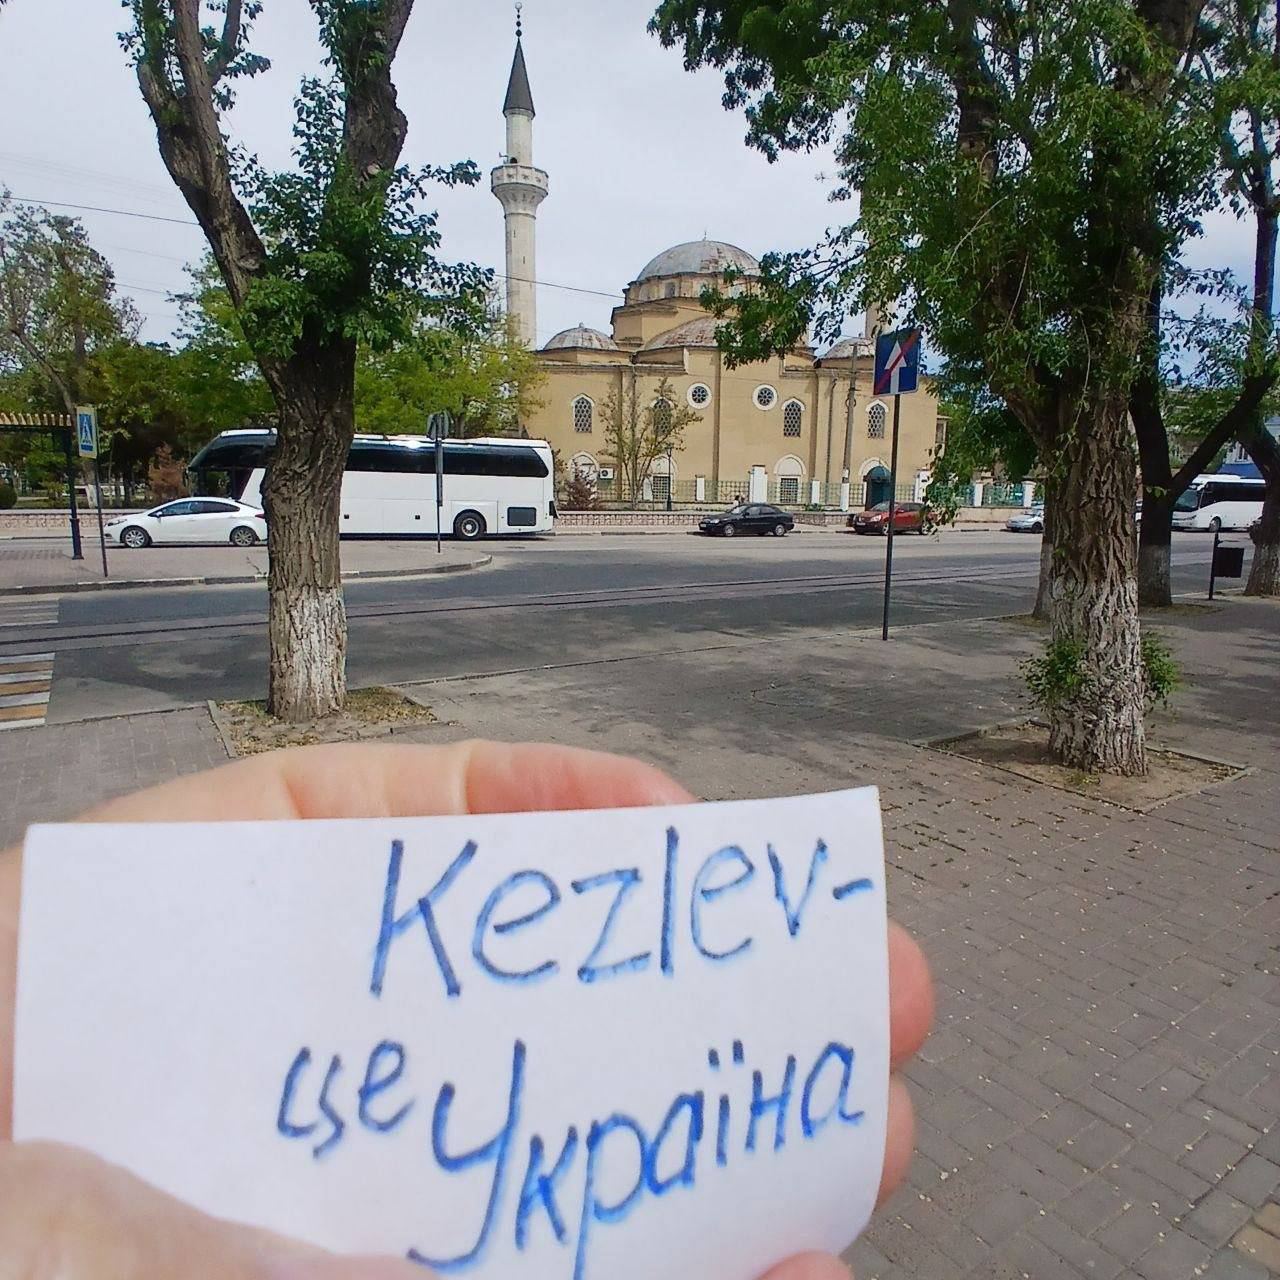 Kezlev-
це Україна